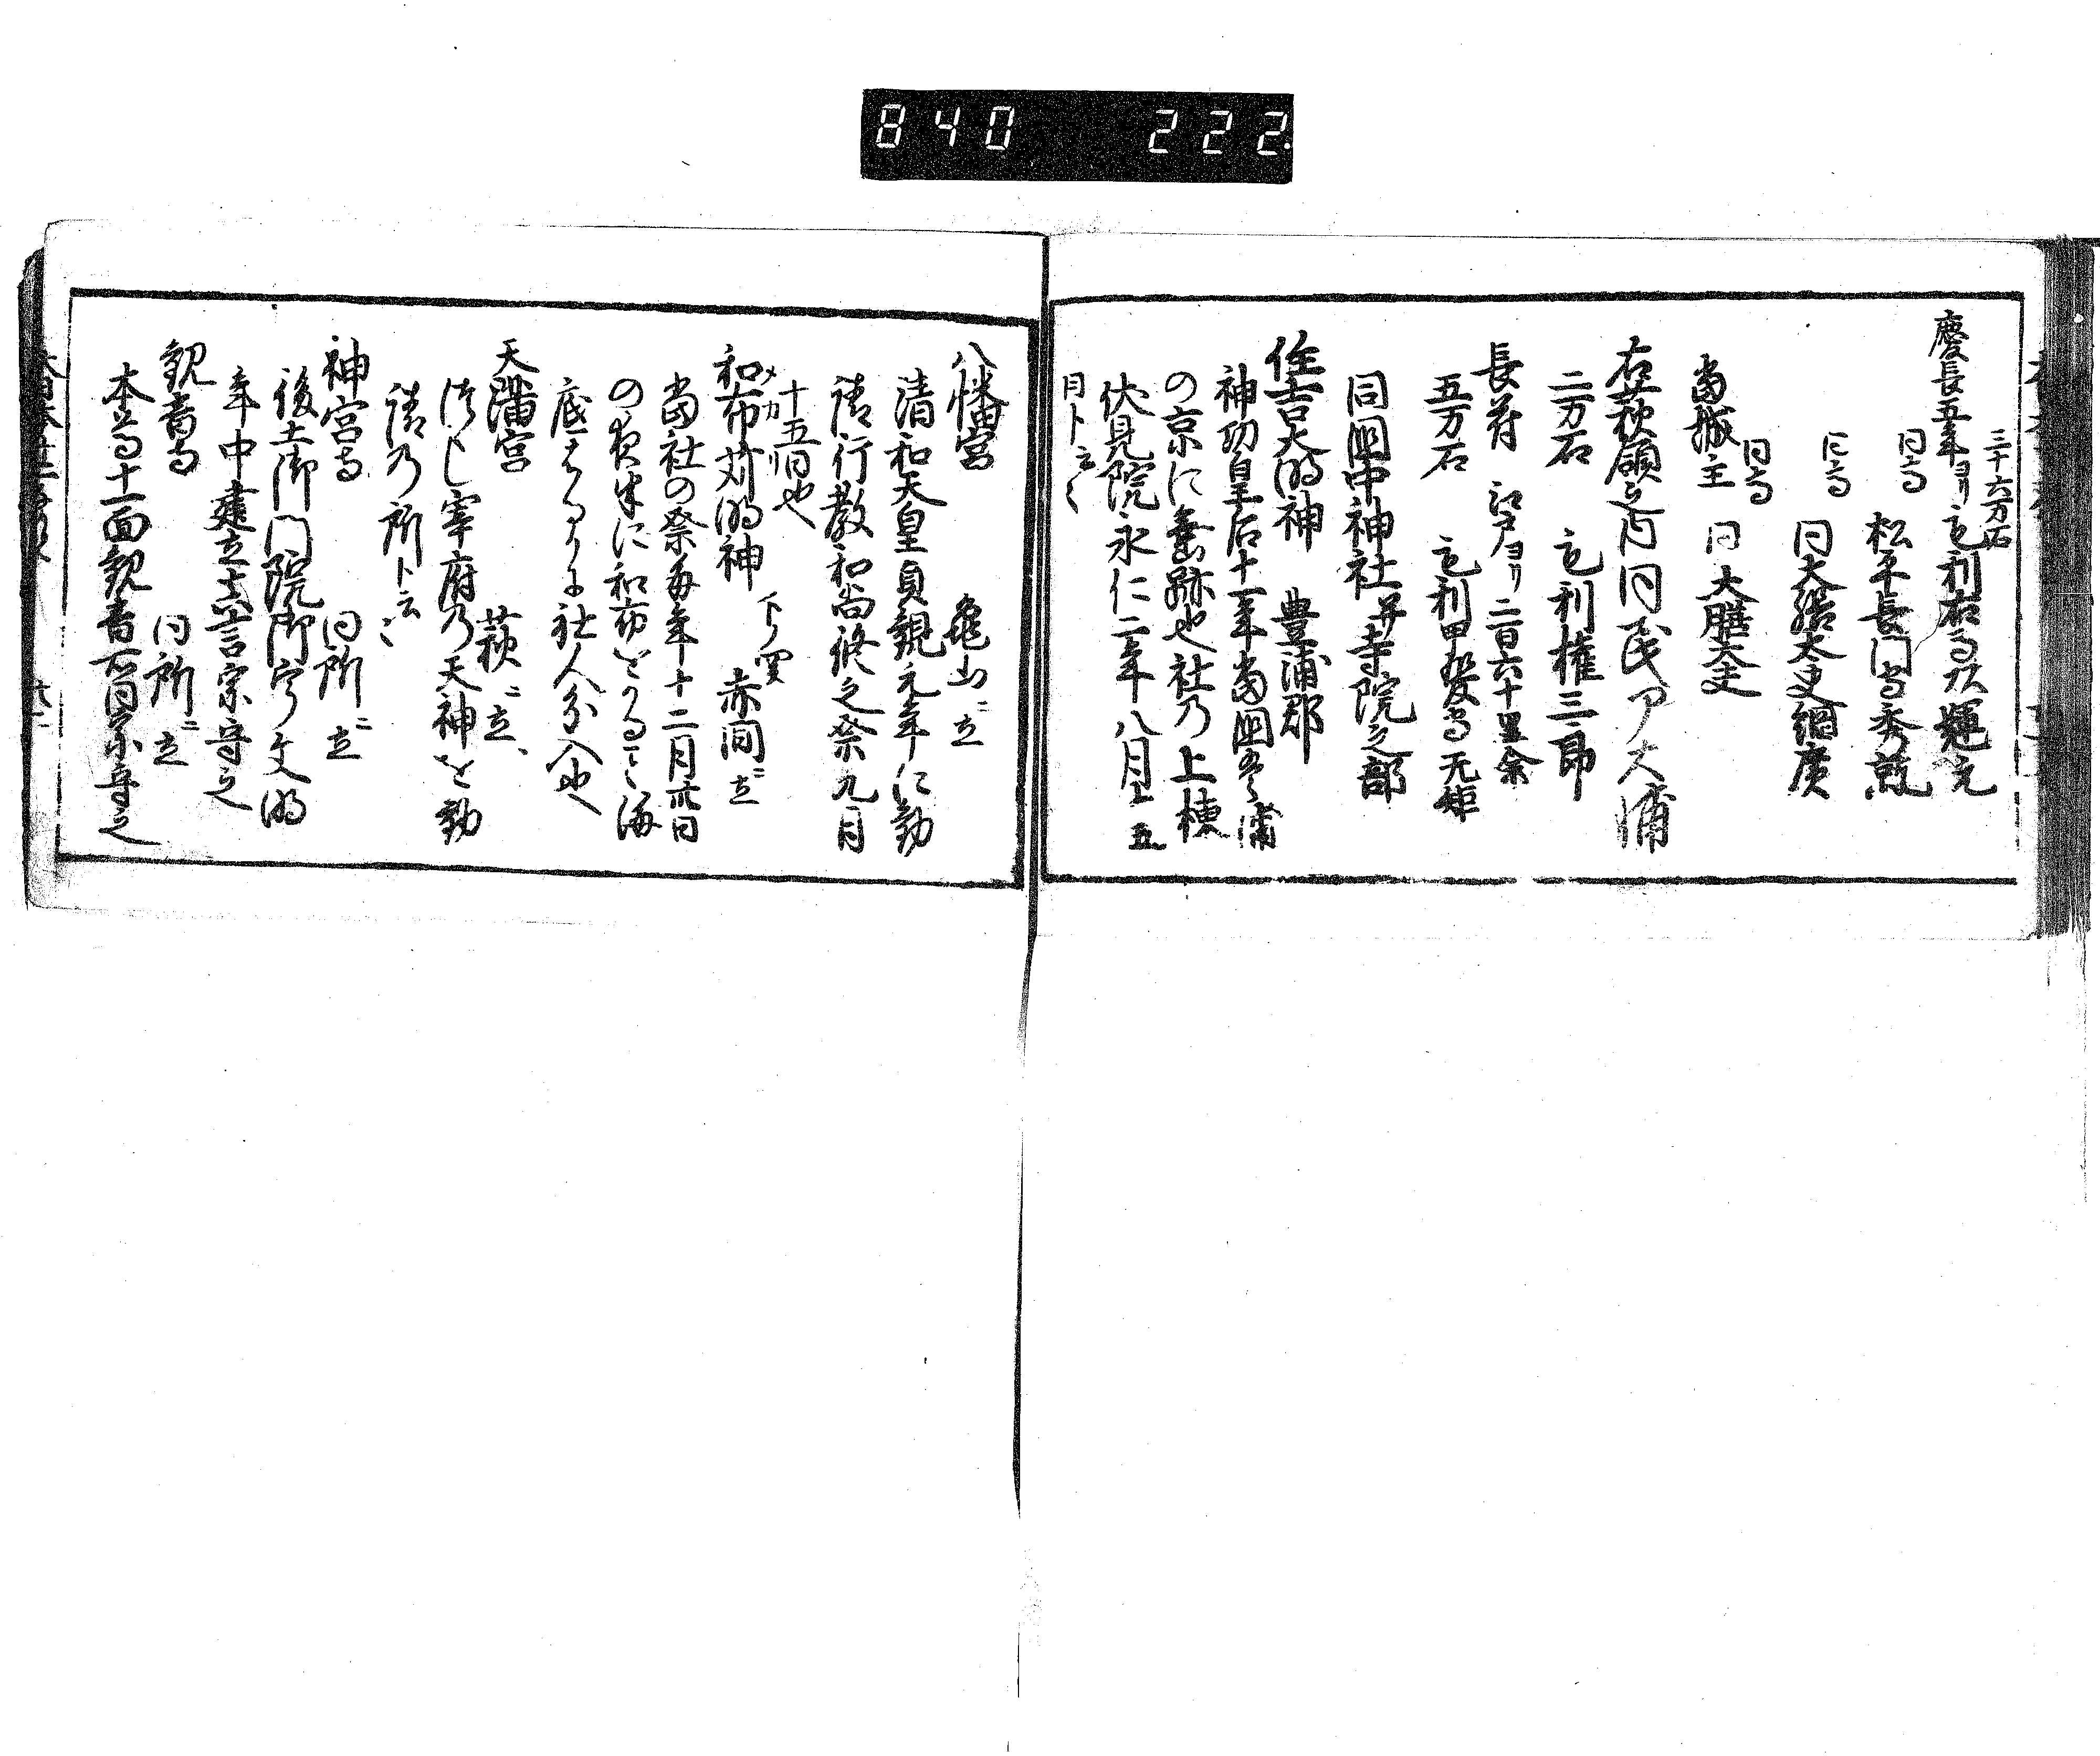 840 222
三十六万石
慶長五年ヨリ毛利右馬頭輝元
同高
松平長門守秀就
同高
同大膳大夫綱廣
同高
當城主 同大膳大夫
右萩領之内同民ア大浦
二万石 毛利権三郎
長府 江戸ヨリ二百六十里余
五万石 毛利甲斐守元矩
同国中神社并寺院之部
住吉大明神 豊浦郡
神功皇后十一年當国豊浦
の京に垂跡也社乃上棟
伏見院永仁二年八月十五
月ト云々
八幡宮 亀山ニ立
清和天皇貞観元年に勧
請行教和尚修之祭九月
十五日也
和布苅明神 下ノ関 赤間ニ立
メカ
當社の祭毎年十二月晦日
の夜半に和布をかるこ海
底はるかに社人分入也
天満宮 萩ニ立
つくし宰府乃天神を勧
請乃所ト云々
神宮寺 同所ニ立
後土御門院御宇文明
年中建立真言宗守之
観音寺 同所ニ立
本尊十一面観音右同宗守之